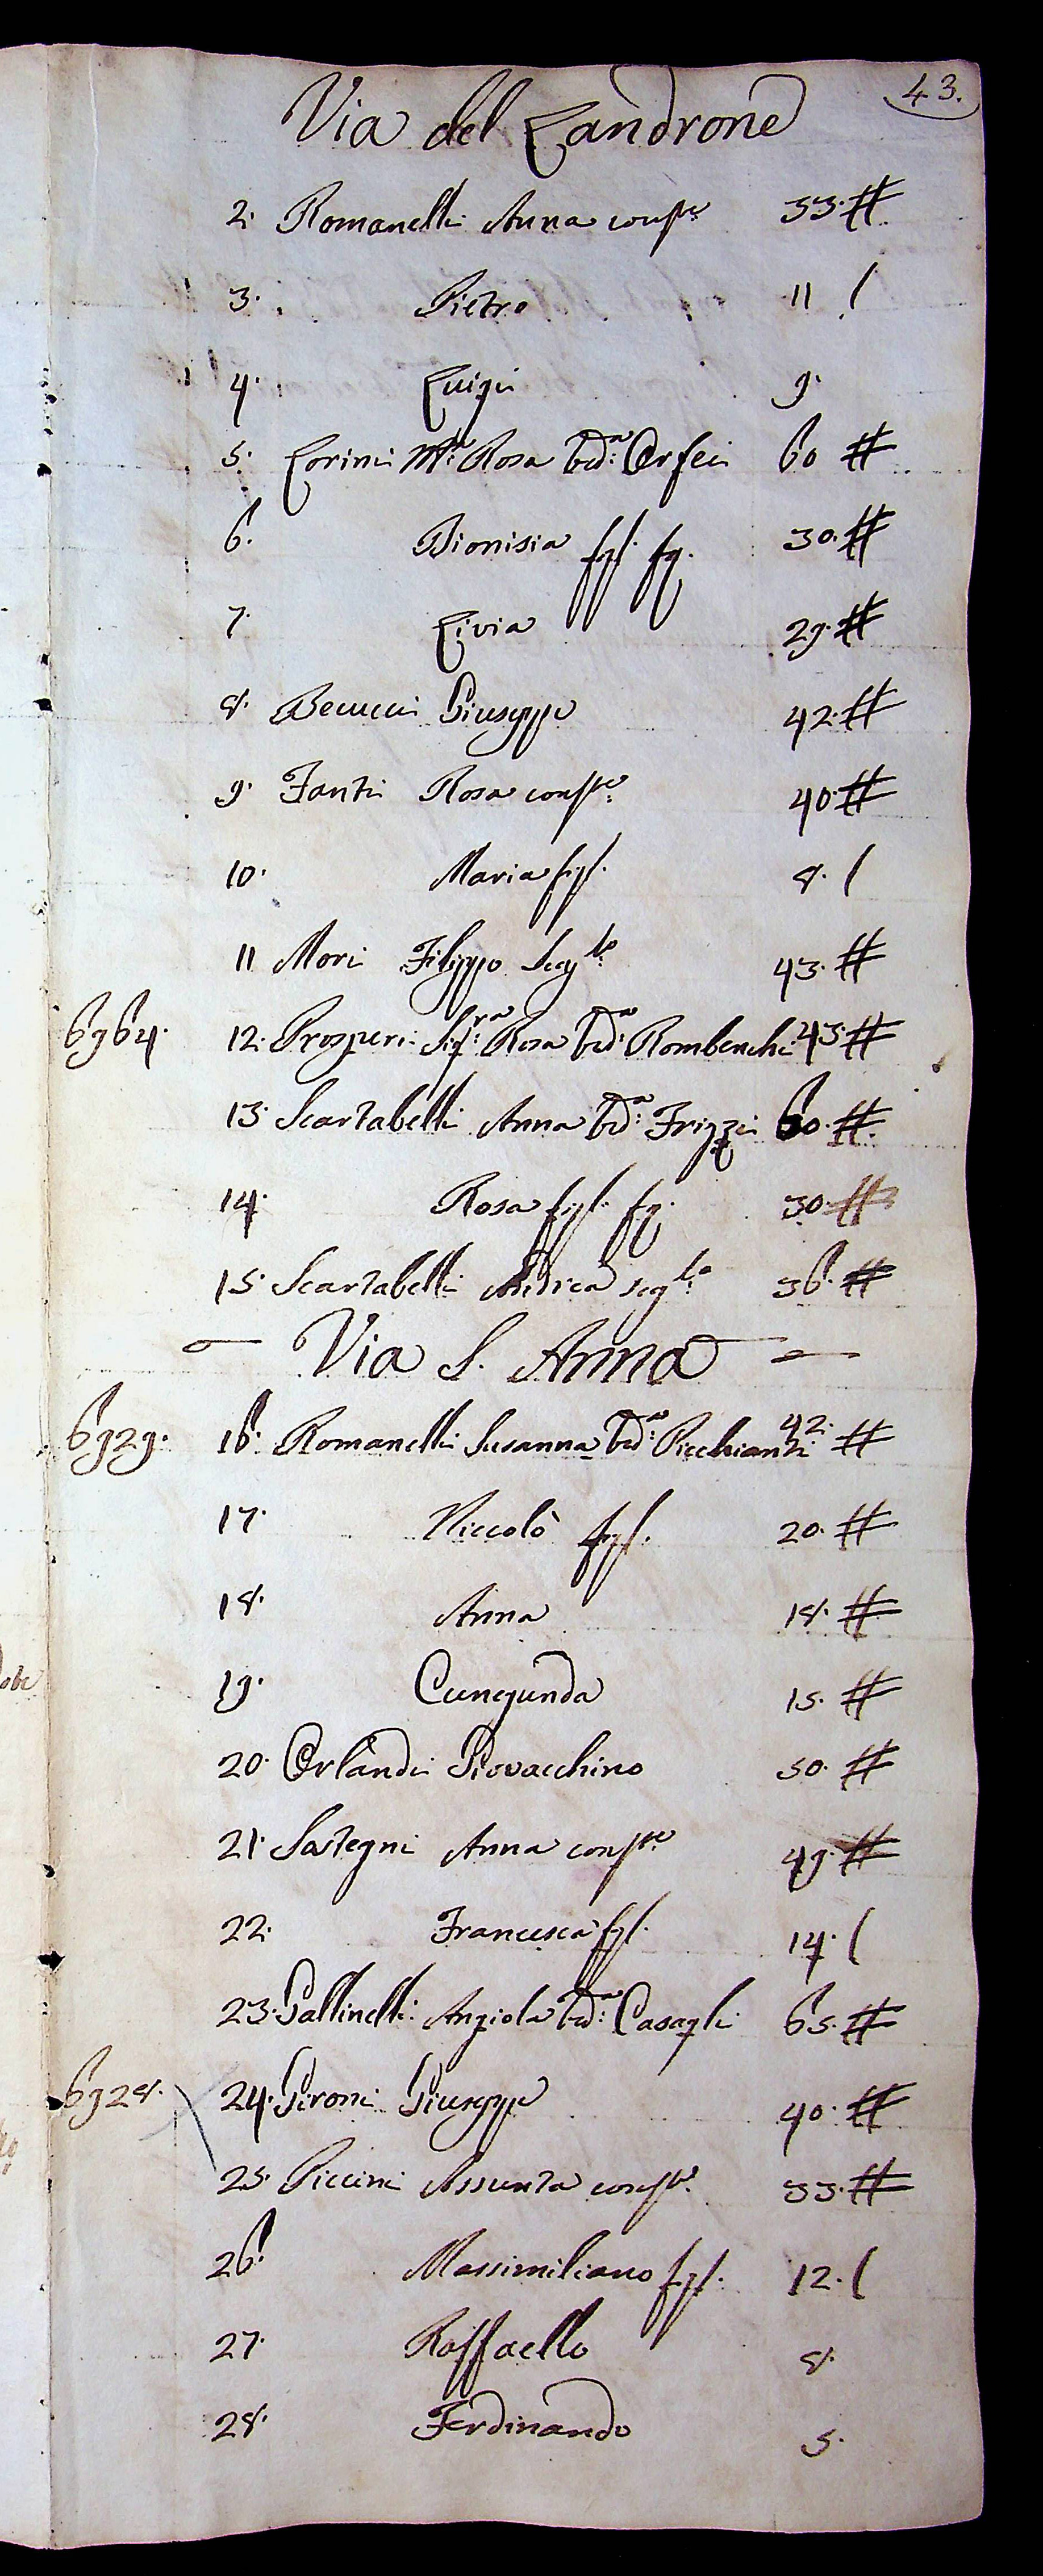 43.
Via del Landrone
2. Romanelli Anna conste. 33. #
3. Pietro 11 /
4. Luigi 9.
5. Lorini Ma. Rosa vda. Orfei 60 #
6. Dionisia figl. fg. 30. #
7. Livia 29. #
8. Becucci Giuseppe 42. #
9. Fanti Rosa conste. 40 #
10. Maria figl. 8. /
11 Mori Filippo Seglo. 43. #
6964. 12. Prosperi Sigra. Rosa vda. Rombenchi 43 #
13. Scartabelli Anna vda. Frizzi 60. #
14. Rosa figl. fg. 30 #
15. Scartabelli Andrea seglo. 36. #
Via S. Anna
6929. 16. Romanelli Susanna vda. Picchianti 42. #
17. Niccolò figl. 20. #
18. Anna 18. #
19. Cunegunda 15. #
20. Orlandi Giovacchino 50. #
21. Sostegni Anna conste. 49. #
22. Francesca figl. 14. /
23. Gallinelli Angiola vda. Casagli 65. #
6928. 24. Gironi Giuseppe 40. #
25. Piccini Assunta conste. 33. #
26. Massimiliano figl. 12. /
27. Raffaello 8.
28. Ferdinando 5.